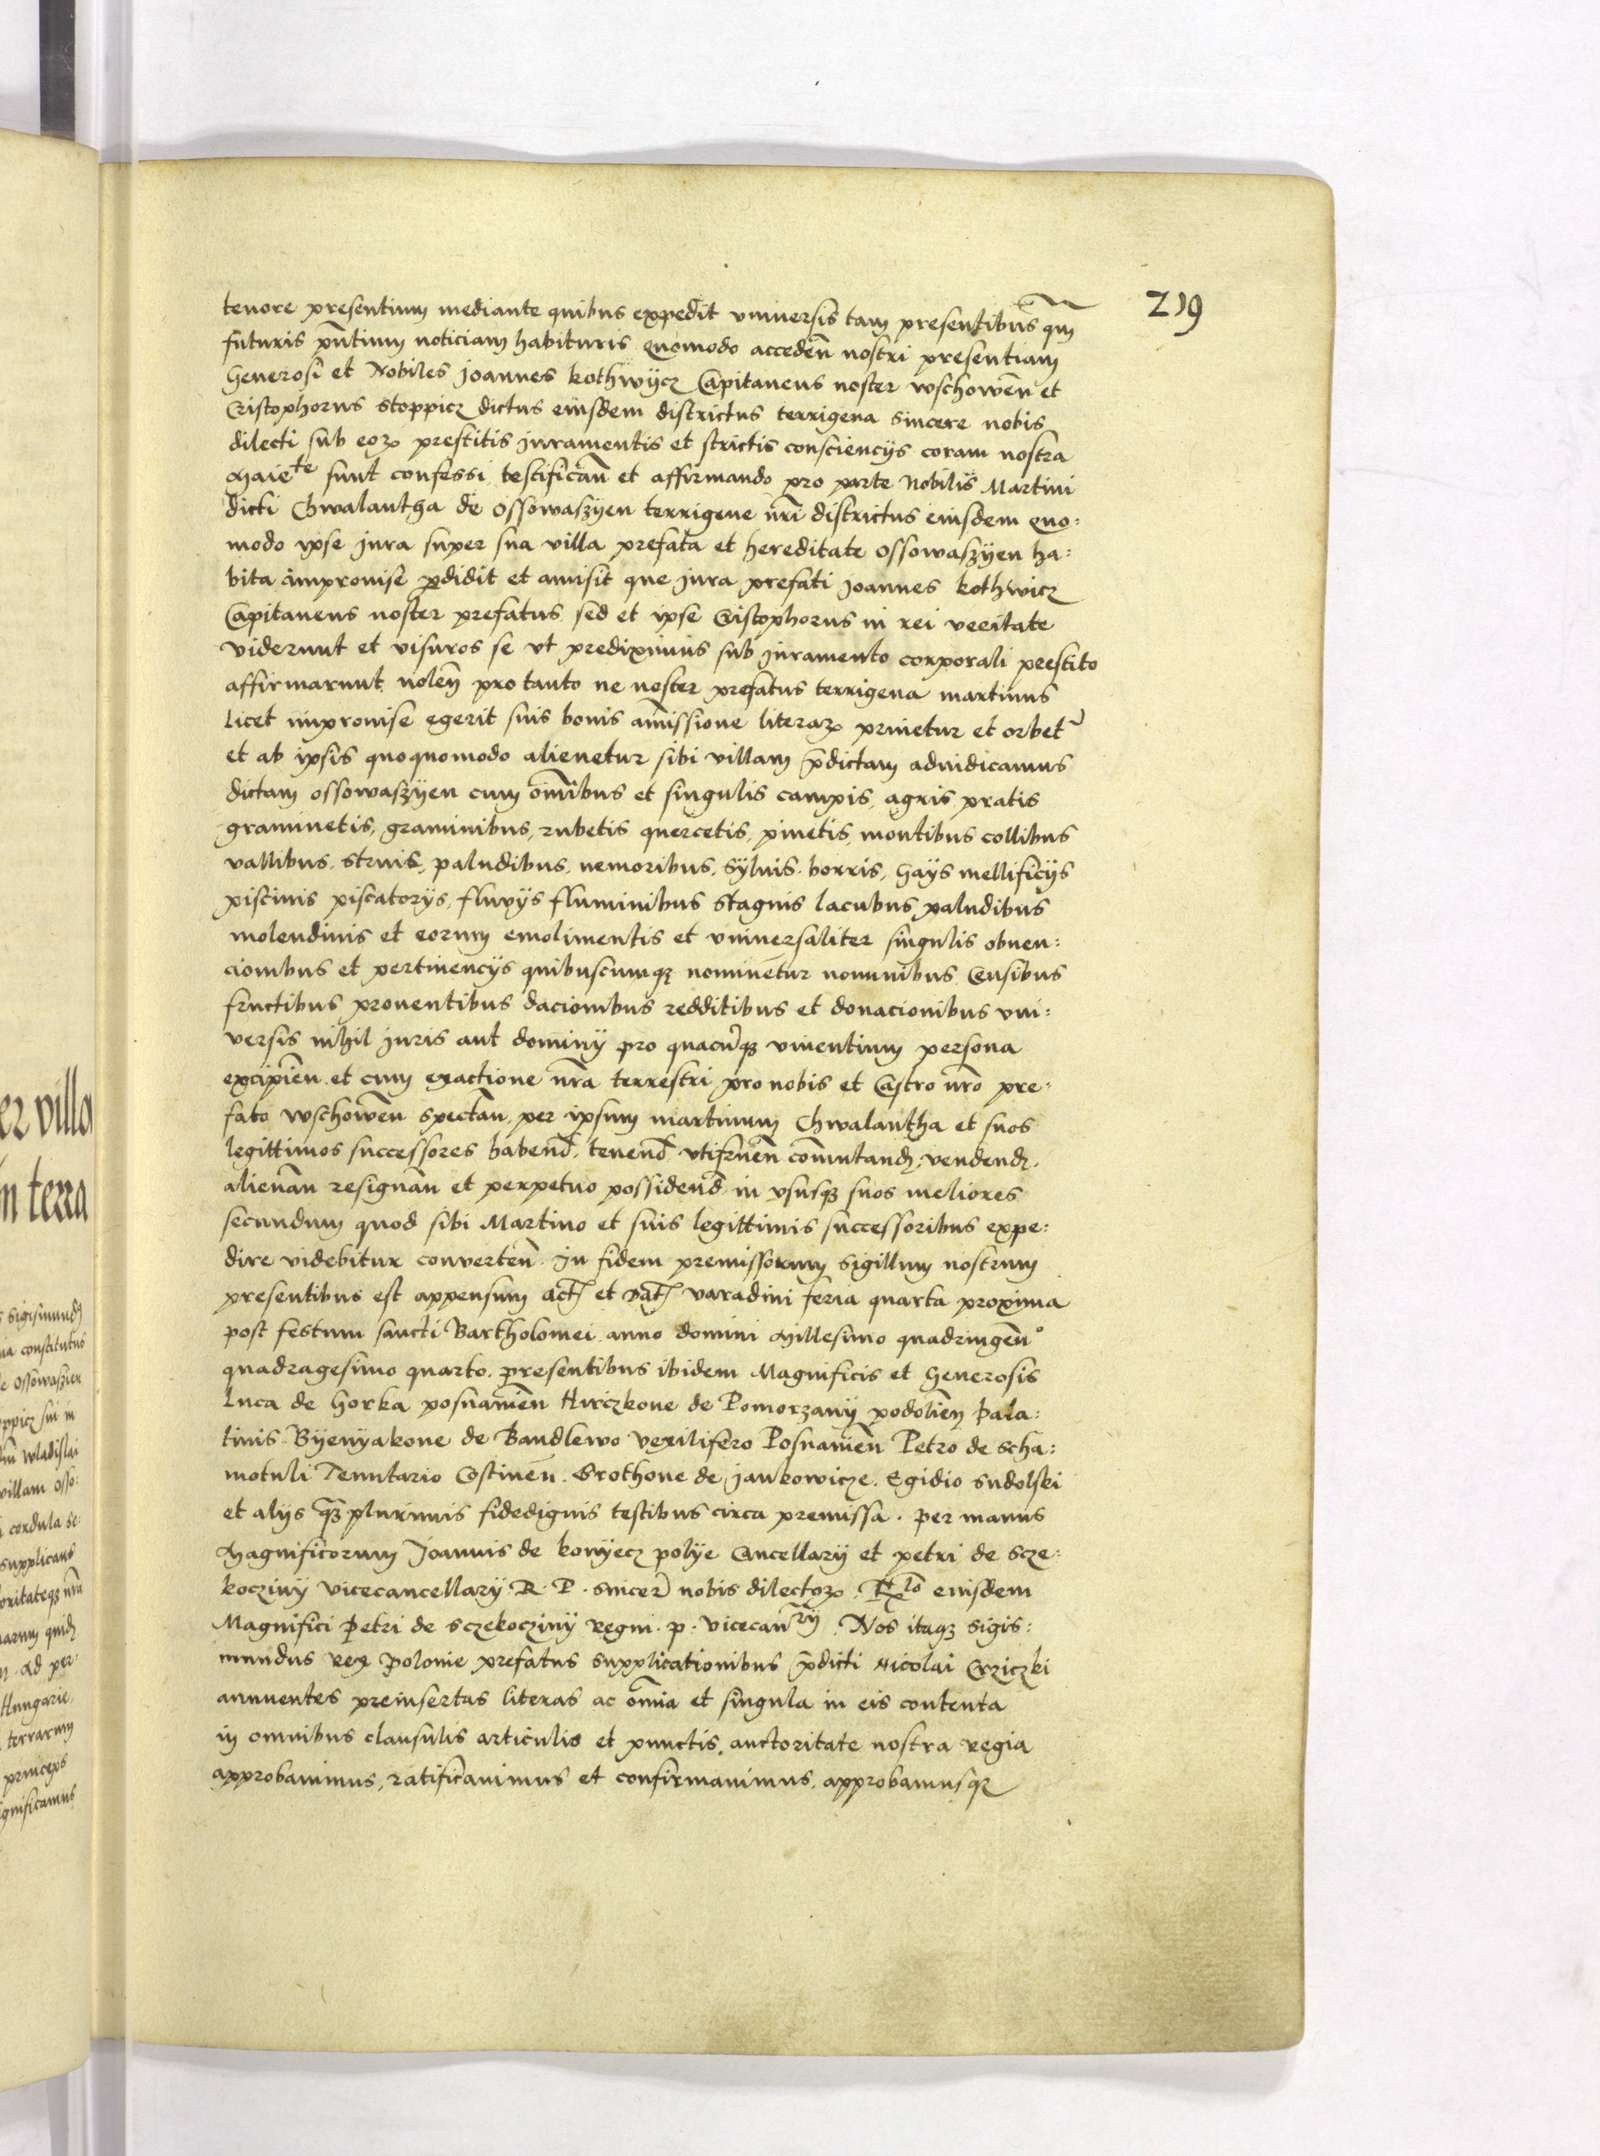 219
tenore presentium mediante quibus expedit vniuersis tam presentibus qm̃
futuris pñtium noticiam habituris quomodo acceden̄ nostri presentiam
Generosi et Nobiles Joannes kothwÿcz Capitaneus noster wschowen̄ et
Cristophorus stoppicz dictus eiusdem districtus terrigena sincere nobis
dilecti sub eoꝝ prestitis juramentis et strictis conscienciis coram nostra
Maiete sunt confessi testifican̄ et affirmando pro parte Nobilis Martini
dicti Chwalantha de Ossowaszÿen terrigene nr̄i districtus eiusdem quo:
modo ipse jura super sua villa prefata et hereditate Ossowaszÿen ha:
bita improuise ꝑdidit et amisit que jura prefati Joannes kothwicz
Capitaneus noster prefatus sed et ipse Cristophorus in rei veritate
viderunt et visuros se vt prediximus sub juramento corporali prestito
affirmarunt nolen̄ pro tanto ne noster prefatus terrigena martinus
licet improuise egerit suis bonis amissione literaꝝ priuetur et orbet᷑
et ab ipsis quoquomodo alienetur sibi villam p̄dictam adiudicamus
dictam ossowaszÿen cum om̄ibus et singulis campis, agris, pratis
graminetis, graminibus, rubetis quercetis, pinetis, montibus collibus
vallibus, struis, paludibus, nemoribus, sÿluis, borris, haÿs mellificÿs
piscinis piscatorÿs, fluvÿs fluminibus stagnis lacubus paludibus
molendinis et eorum emolimentis et vniuersaliter singulis obuen:
cionibus et pertinencÿs quibuscumqꝫ nominētur nominibus Censibus
fructibus prouentibus dacionibus redditibus et donacionibus vni:
versis nihil juris aut dominÿ pro quacūqꝫ viuentium persona
excipien̄ et cum exactione nr̄a terrestri pro nobis et Castro nr̄o pre:
fato wschowen̄ spectan̄ per ipsum martinum Chwalantha et suos
legittimos successores habend̄, tenend̄ vtifruen̄ com̄utand̄, vendend̄,
alienan̄ resignan̄ et perpetuo possidend̄ in vsusqꝫ suos meliores
secundum quod sibi Martino et suis legittimis successoribus expe:
dire videbitur conuerten̄. In fidem premissorum sigillum nostrum
presentibus est appensum Act̄ et Dat̄ varadini feria quarta proxima
post festum sancti Bartholomei anno domini Millesimo quadringen̄º
quadragesimo quarto. presentibus ibidem Magnificis et Generosis
Luca de Gorka posnanien̄ Hriczkone de Pomorzanÿ podolien̄ Pala:
tinis Bÿenÿakone de Bandlewo vexilifero Posnanien̄ Petro de scha:
motuli Tenutario Costinen̄. Srothone de Jankowicze. Egidio sudolski
et alÿs qꝫ plurimis fidedignis testibus circa premissa. per manus
Magnificorum Joannis de konÿecz polÿe Cancellarÿ et petri de scze:
koczinÿ vicecancellarÿ R. P. sincer̄ nobis dilectoꝝ. Rlo eiusdem
Magnifici Petri de sczekoczinÿ Regni. p. vicecanrÿ. Nos itaqꝫ sigis:
mundus rex Polonie prefatus supplicationibus p̄dicti Nicolai Crziczki
annuentes preinsertas literas ac om̄ia et singula in eis contenta
in omnibus clausulis articulis et punctis, auctoritate nostra regia
approbauimus, ratificauimus et confirmauimus, approbamusqꝫ
er villa
in terra
sigismundꝫ
ia constitutus
e Ossowaszien
oppicz sui in
wladislai
villam osso:
cordula se:
supplicans
oritateqꝫ nr̄a
narum quidꝫ
. Ad per:
Hungarie,
terrarum
princeps
ignificamus